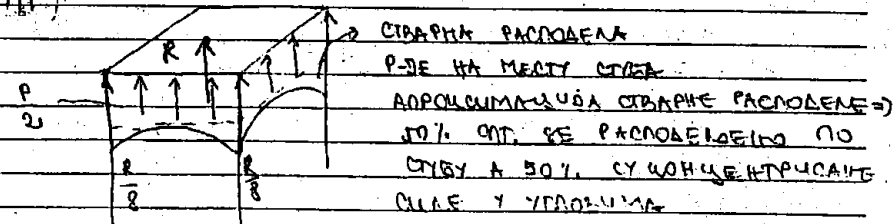 R
P
2
R
8
R
8
СТВАРНА РАСПОДЕЛА
Р-ЈЕ НА МЕСТУ СТУБА
АПРОКСИМАЦИЈА СТВАРНЕ РАСПОДЕЛЕ =>
50% ОПТ. ЈЕ РАСПОДЕЉЕНО ПО
СТУБУ А 50% СУ КОНЦЕНТРИСАНЕ
СИЛЕ У УГЛОВИМА